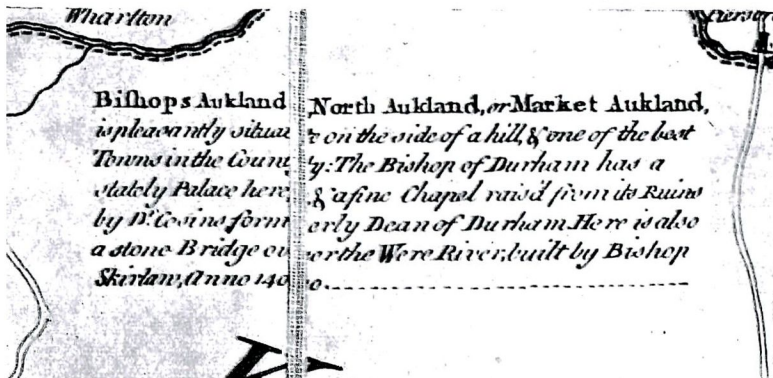 Wharlton
Pierson
Biſhops Aukland North Aukland, or Market Aukland,
is pleasantly situate on the side of a hill, & one of the best
Towns in the County: The Bishop of Durham has a
stately Palace here, & a fine Chapel rais'd from its Ruins
by Dr. Cosins formerly Dean of Durham. Here is also
a stone Bridge over the Were River, built by Bishop
Skirlaw, Anno 1400.